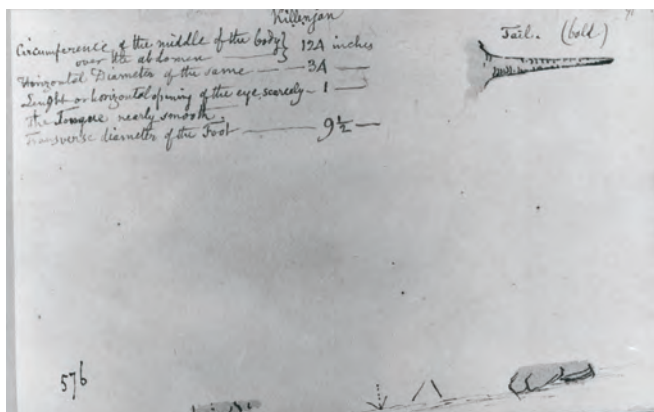 Killenjan
Circumference of the middle of the body}
over the abdomen — } 124 inches
Horizontal Diameter of the same — 34 —
Lenght or horizontal opening of the eye, scarcely - 1 —
The Tongue nearly smooth.
Transverse diameter of the Foot — 9 1/2 —
Tail. (bold)
576